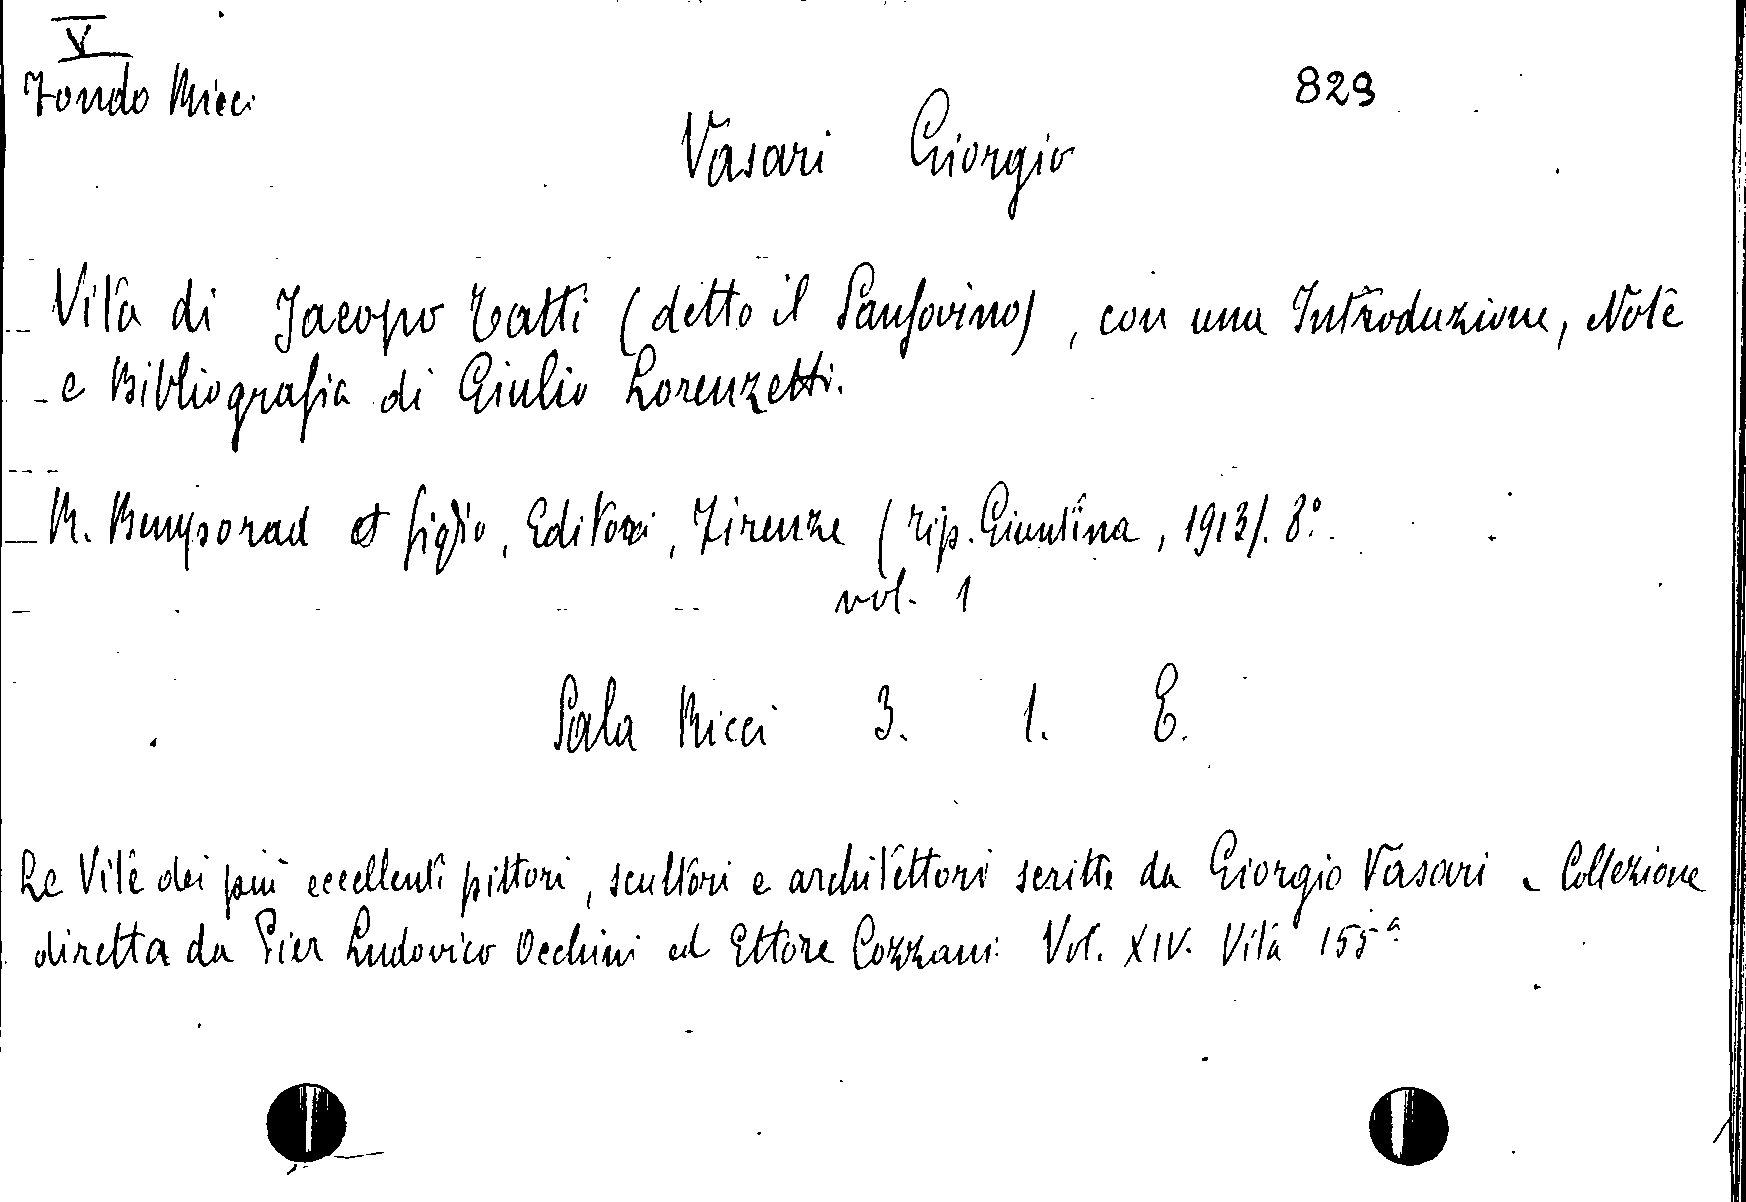 V
Fondo Ricci
829
Vasari Giorgio
Vita di Jacopo Tatti (detto il Sansovino), con una Introduzione, Note
e Bibliografia di Giulio Lorenzetti.
R. Bemporad et figlio, Editori, Firenze (tip. Giuntina, 1913). 8°.
vol. 1
Sala Ricci 3. 1. E.
Le Vite dei più eccellenti pittori, scultori e architettori scritte da Giorgio Vasari - Collezione
diretta da Pier Ludovico Occhini ed Ettore Cozzani. Vol. XIV. Vita 155ª